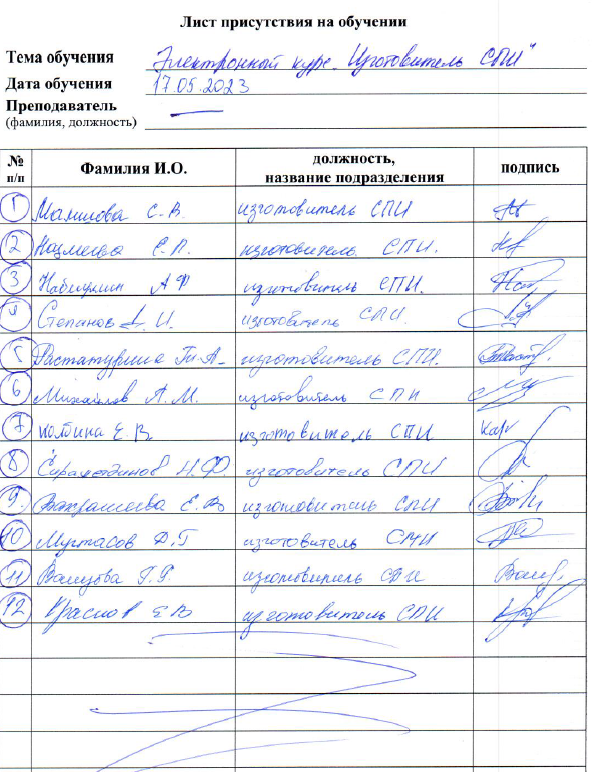 Лист присутствия на обучении
Тема обучения Электронный курс "Изготовитель СПИ"
Дата обучения 17.05.2023
Преподаватель
(фамилия, должность)
№ п/п Фамилия И.О. должность, название подразделения подпись
1 С. В. изготовитель СПИ
2 изготовитель СПИ.
3 А Ф изготовитель СПИ.
4 Степанов А. И. изготовитель СПИ.
5 изготовитель СПИ.
6 Михайлов А. М. изготовитель СПИ
7 Колбина Е. В. изготовитель СПИ
8 Сиражетдинов Н.Ф. изготовитель СПИ
9. Вахрашева Е. В. изготовитель СПИ
10 Муртасов Д.Г изготовитель СПИ
11 Валиева Г. Р. изготовитель СПИ
12 Краснов Е В изготовитель СПИ